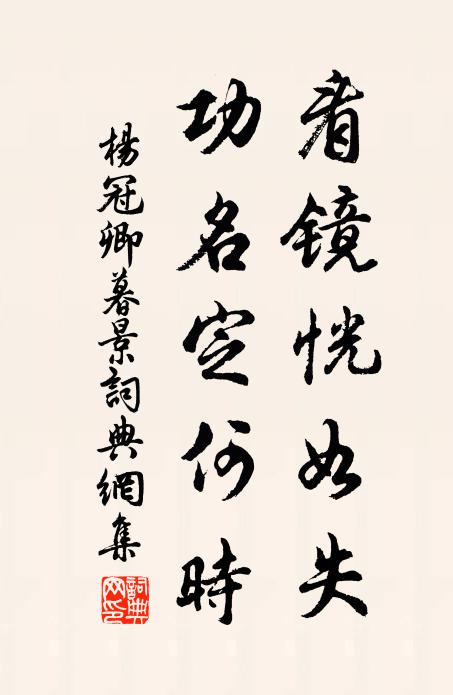 看镜恍如失
功名定何時
楊冠卿暮景詞典網集
詞典网印